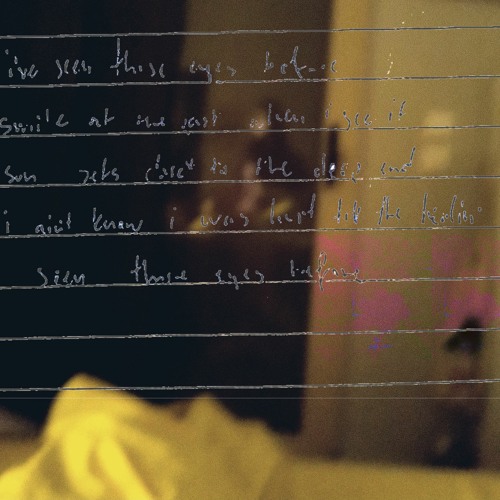 i've seen those eyes before
smile at the past when i see it
sun sets close to the deep end
i ain't know i was hurt til the
seen those eyes before